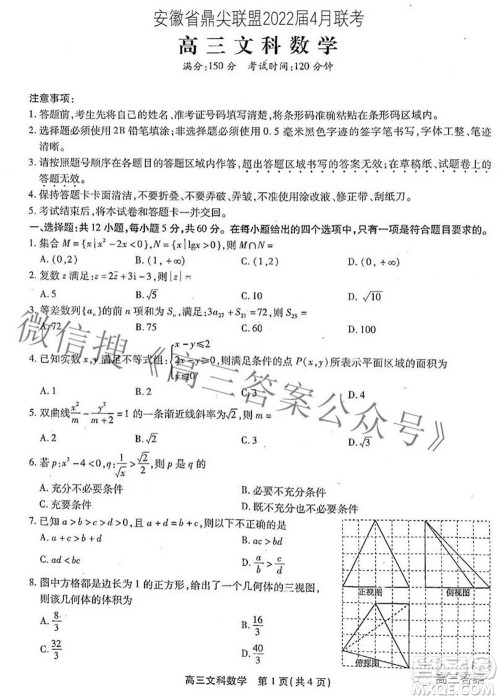 安徽省鼎尖联盟2022届4月联考
高三文科数学
满分:150分 考试时间:120分钟
注意事项:
1. 答题前,考生先将自己的姓名、准考证号码填写清楚,将条形码准确粘贴在条形码区域内。
2. 选择题必须使用2B铅笔填涂;非选择题必须使用0.5毫米黑色字迹的签字笔书写,字体工整、笔迹
清晰。
3. 请按照题号顺序在各题目的答题区域内作答,超出答题区域书写的答案无效;在草稿纸、试题卷上的
答题无效。
4. 保持答题卡卡面清洁,不要折叠、不要弄破、弄皱,不准使用涂改液、修正带、刮纸刀。
5. 考试结束后,将本试卷和答题卡一并交回。
一、选择题:共12小题,每小题5分,共60分。在每小题给出的四个选项中,只有一项是符合题目要求的。
1. 集合M={x|x²-2x<0},N={x|lgx>0},则M∩N=
A. (0,2) B. (0,+∞) C. (1,2) D. (1,+∞)
2. 复数z满足:z=2z̄+3i-3,则|z|=
A. 5 B. √5 C. 10 D. √10
3. 等差数列{aₙ}的前n项和为Sₙ,满足:3a₂₇+S₂₁=72,则
A. 72 B. 75 C. D. 100
4. 已知实数x,y满足不等式组: x-y≤2 x-y≥0 ,则满足条件的点P(x,y)所表示平面区域的面积为
A. 1 B. 2 C. 3 D. 4
5. 双曲线x²/m-y²/(m+2)=1的一条渐近线斜率为√2,则m=
A. 2 B. C. 3 D.
6. 若p:x²-4<0,q:1/√x>√2/2,则p是q的
A. 充分不必要条件 B. 必要不充分条件
C. 充要条件 D. 既不充分也不必要条件
7. 已知a>b>c>d>0,且a+d=b+c,则下列不成立的是
A. a+c>b+d B. ac>bd
C. ad<bc D. a/b>c/d
8. 图中方格都是边长为1的正方形,给出了一个几何体的三视图,
则该几何体的体积为
A. 8/3 B. 16/3
C. 32/3 D. 43/3
正视图 侧视图
俯视图
高三文科数学 第1页(共4页)
微信搜《高三答案公众号》
高三答案